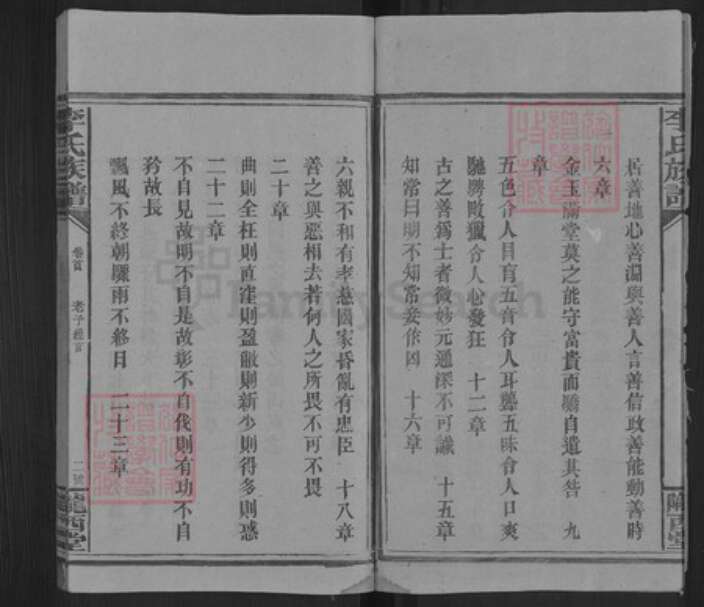 李氏族譜
居善地心善淵與善人言善信政善能動善時
六章
金玉滿堂莫之能守富貴而驕自遺其咎 九
章
五色令人目盲五音令人耳聾五味令人口爽
馳騁畋獵令人心發狂 十二章
古之善為士者微妙元通深不可識 十五章
知常曰明不知常妄作凶 十六章
隴西堂
六親不和有孝慈國家昏亂有忠臣 十八章
善之與惡相去若何人之所畏不可不畏
二十章
曲則全枉則直窪則盈敝則新少則得多則惑
二十二章
不自見故明不自是故彰不自伐則有功不自
矜故長
飄風不終朝驟雨不終日 二十三章
李氏族譜
卷首 老子經言
二號
隴西堂
FamilySearch